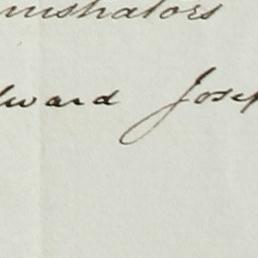 inistrators
dward Josep